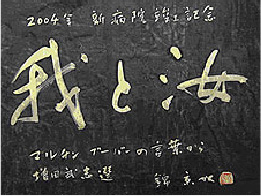 2004年 新病院竣工記念
我と汝
マルチン ブーバーの言葉から
増田武志選